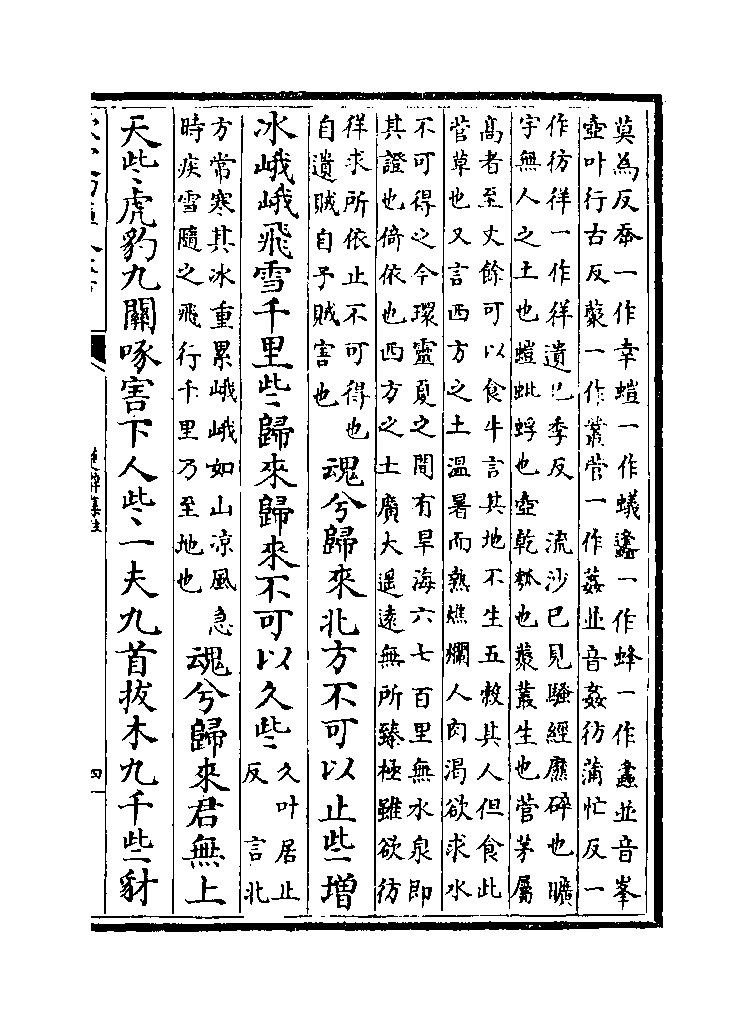 莫為反㚔一作幸螘一作蟻蠭一作蜂一作蠭並音峯
壺叶行古反藂一作叢菅一作蕑並音姦彷蒲忙反一
作彷徉一作徉遺已季反 流沙已見騷經靡碎也曠
宇無人之土也螘蚍蜉也壺乾瓠也藂叢生也菅茅屬
高者至丈餘可以食牛言其地不生五穀其人但食此
菅草也又言西方之土温暑而熱燋爛人肉渴欲求水
不可得之今環靈夏之間有旱海六七百里無水泉即
其證也倚依也西方之土廣大遥遠無所臻極雖欲彷
徉求所依止不可得也
自遺賊自予賊害也
魂兮歸來北方不可以止些增
冰峨峨飛雪千里些歸來歸來不可以久些
久叶居止
反 言北
方常寒其冰重累峨峨如山涼風急
時疾雪隨之飛行千里乃至地也
魂兮歸來君無上
天些虎豹九關啄害下人些一夫九首拔木九千些豺
楚辭集注
四